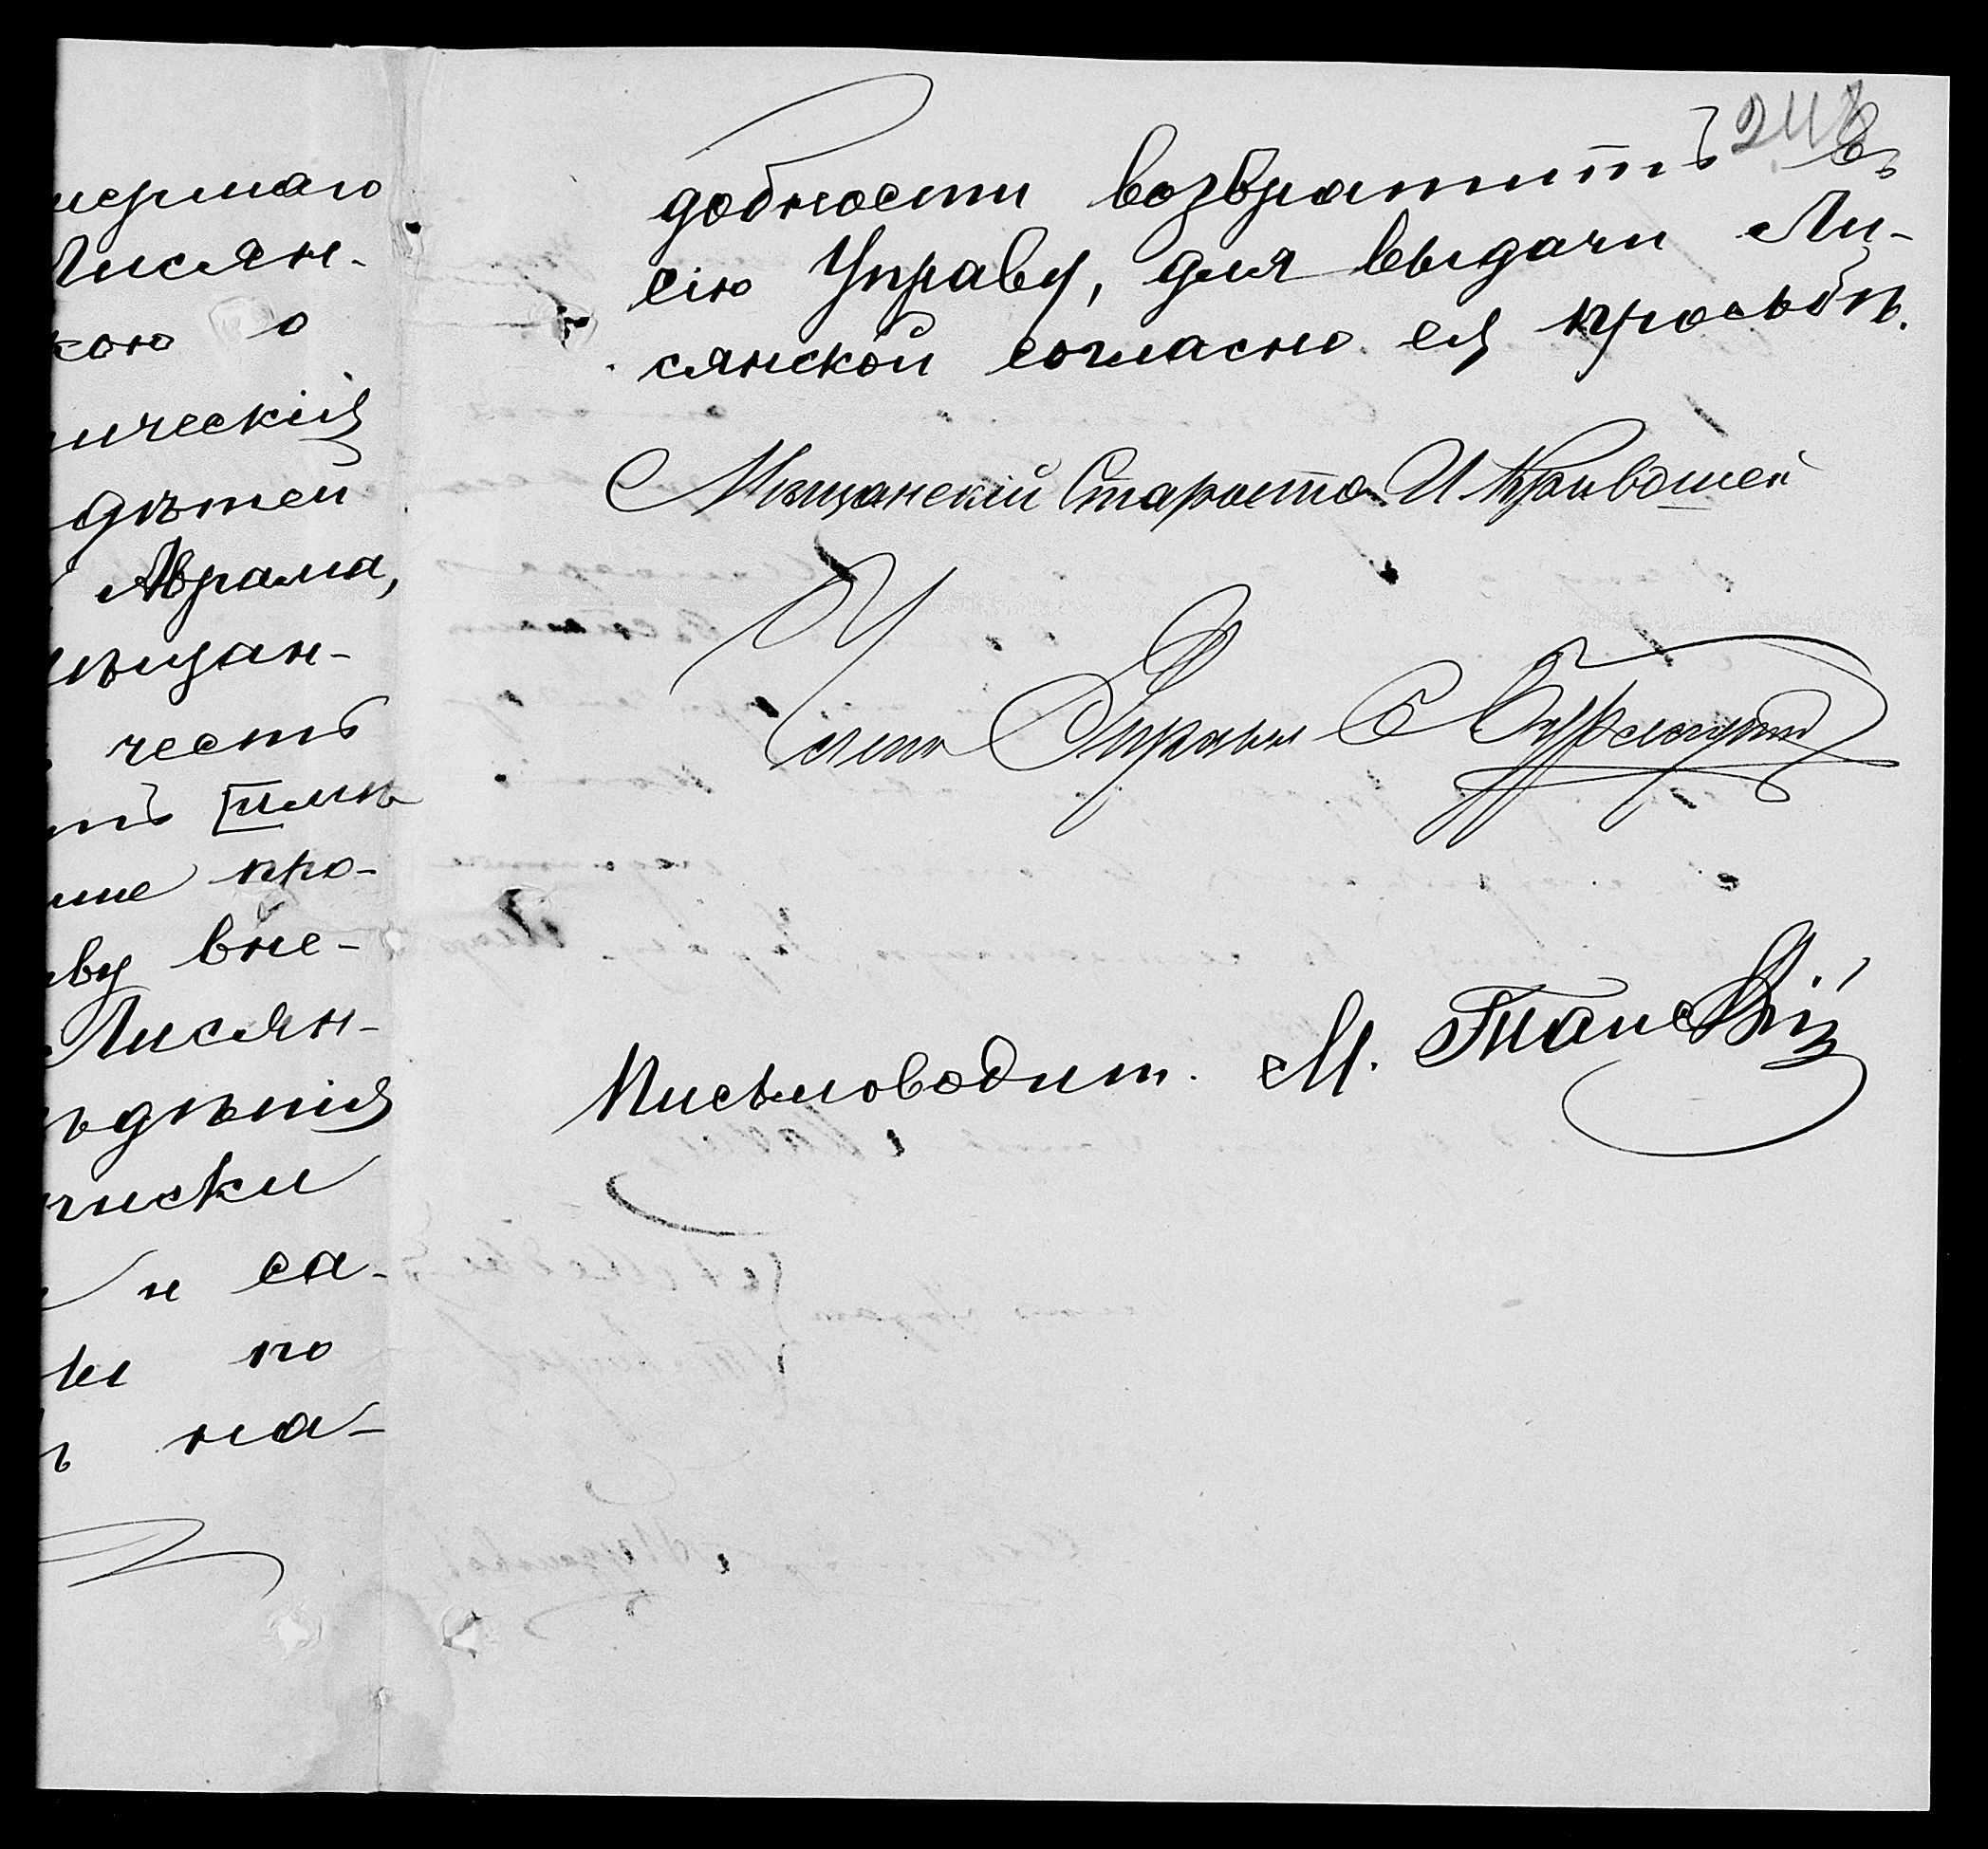 умершаго
Лисян-
кою о
ическія
дѣтей
Аврама,
мѣщан-
честь
про-
аву вне-
Лисян-
ѣдѣнія
писки
и са-
по
ъ на-
248
добности возвратить въ
сію Управу, для выдачи Ли-
сянской согласно ея просьбѣ.
Мѣщанскій Староста И Кривошей
Члены Управы Б
Письмоводит. М.